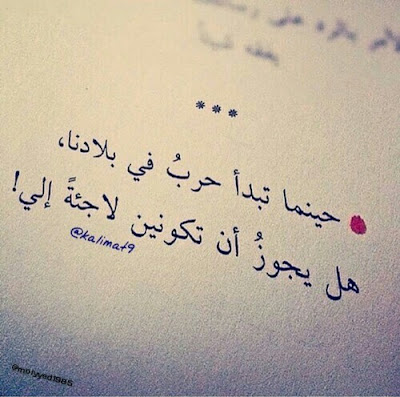 على
***
حينما تبدأ حربُ في بلادنا،
هل يجوزُ أن تكونين لاجئةً إلي!
@kalimat9